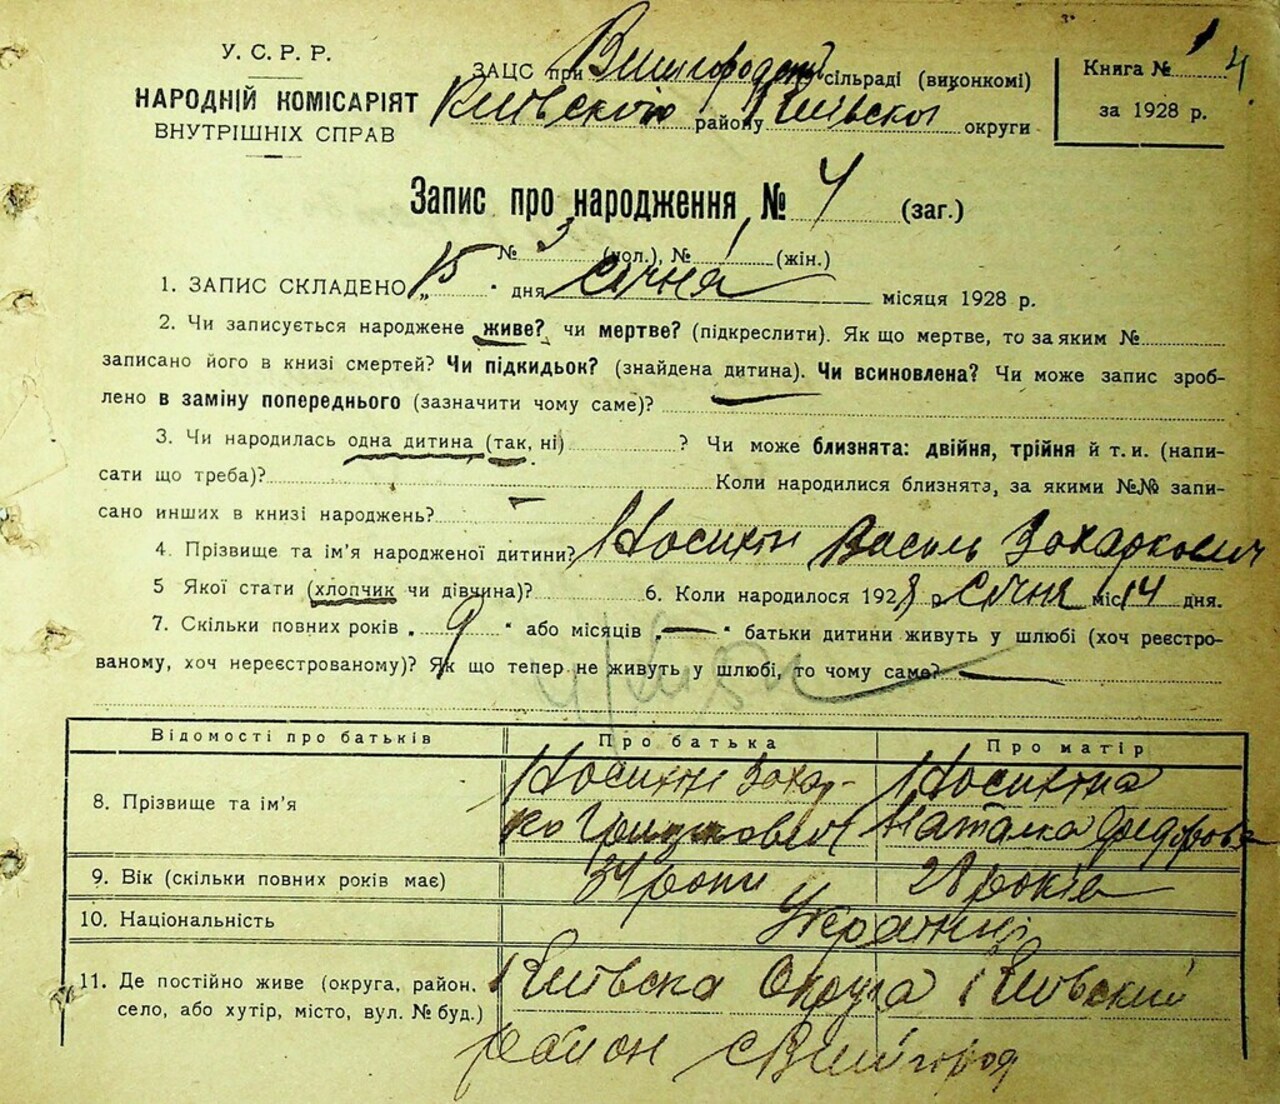 У. С. Р. Р.
НАРОДНІЙ КОМІСАРІЯТ
ВНУТРІШНІХ СПРАВ
ЗАЦС при Вишгородській сільраді (виконкомі)
Київського району Київської округи
Книга № 1
за 1928 р.
4
Запис про народження № 4 (заг.)
№ 3 (чол.), № (жін.)
1. ЗАПИС СКЛАДЕНО „15" дня січня місяця 1928 р.
2. Чи записується народжене живе? чи мертве? (підкреслити). Як що мертве, то за яким №
записано його в книзі смертей? Чи підкидьок? (знайдена дитина). Чи всиновлена? Чи може запис зроб-
лено в заміну попереднього (зазначити чому саме)?
3. Чи народилась одна дитина (так, ні) ? Чи може близнята: двійня, трійня й т. и. (напи-
сати що треба)? Коли народилися близнята, за якими №№ запи-
сано инших в книзі народжень? —
4. Прізвище та ім'я народженої дитини? Носихін Василь Захаркович
5 Якої стати (хлопчик чи дівчина)? 6. Коли народилося 1928 р січня міс 14 дня.
7. Скільки повних років „ 9 " або місяців „ — " батьки дитини живуть у шлюбі (хоч реєстро-
ваному, хоч нереєстрованому)? Як що тепер не живуть у шлюбі, то чому саме? —
Відомості про батьків Про батька Про матір
8. Прізвище та ім'я Носихін Захар- Носихіна
ко Грицькович Наталка Федоровна
9. Вік (скільки повних років має) 34 роки 28 років
10. Національність Українці
11. Де постійно живе (округа, район, Київська Округа Київский
село, або хутір, місто, вул. № буд.)
район с Вишгород